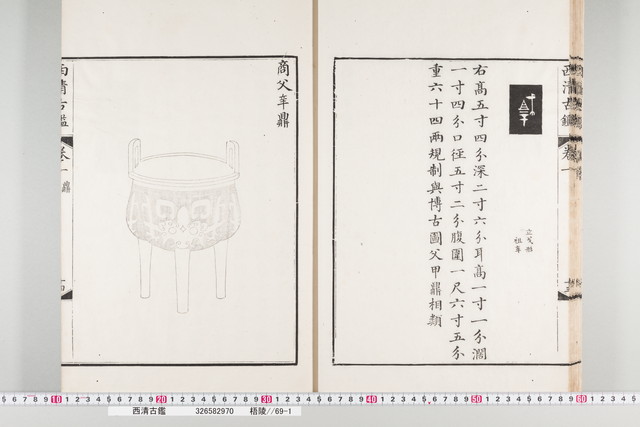 西清古鑑
卷一
立戈形
祖辛
右高五寸四分深二寸六分耳高一寸一分濶
一寸四分口徑五寸二分腹圍一尺六寸五分
重六十四兩規制與博古圖父甲鼎相類
商父辛鼎
西清古鑑
卷一
鼎
西清古鑑 326582970 梧陵//69-1